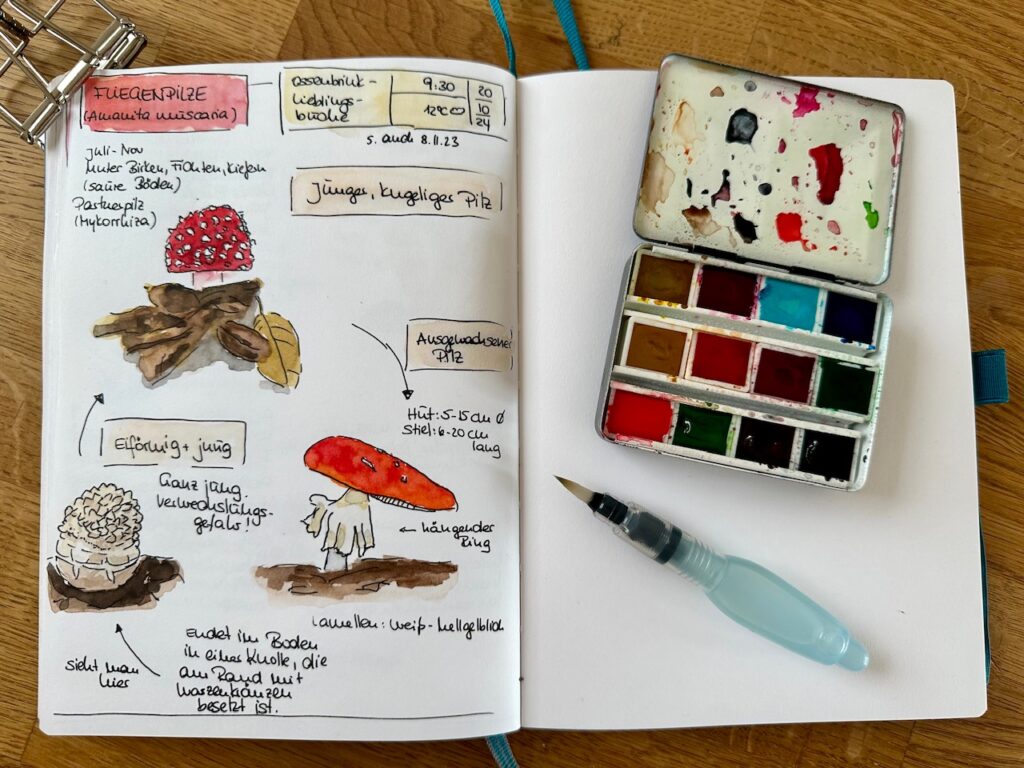 FLIEGENPILZE
(Amanita muscaria)
Ossenbrink-
Lieblings-
buche
9:30
12°C
20
10
24
s. auch 8.11.23
Juli-Nov
Unter Birken, Fichten, Kiefern
(saure Böden)
Partnerpilz
(Mykorrhiza)
Junger, kugeliger Pilz
Ausgewachsener
Pilz
Hut: 5-15 cm Ø
Stiel: 6-20 cm
lang
Eiförmig + jung
Ganz jung
verwechslungs-
gefahr!
← hängender
Ring
Lamellen: weiß-hellgelblich
sieht man
hier
Endet im Boden
in einer Knolle, die
am Rand mit
Warzenkränzen
besetzt ist.